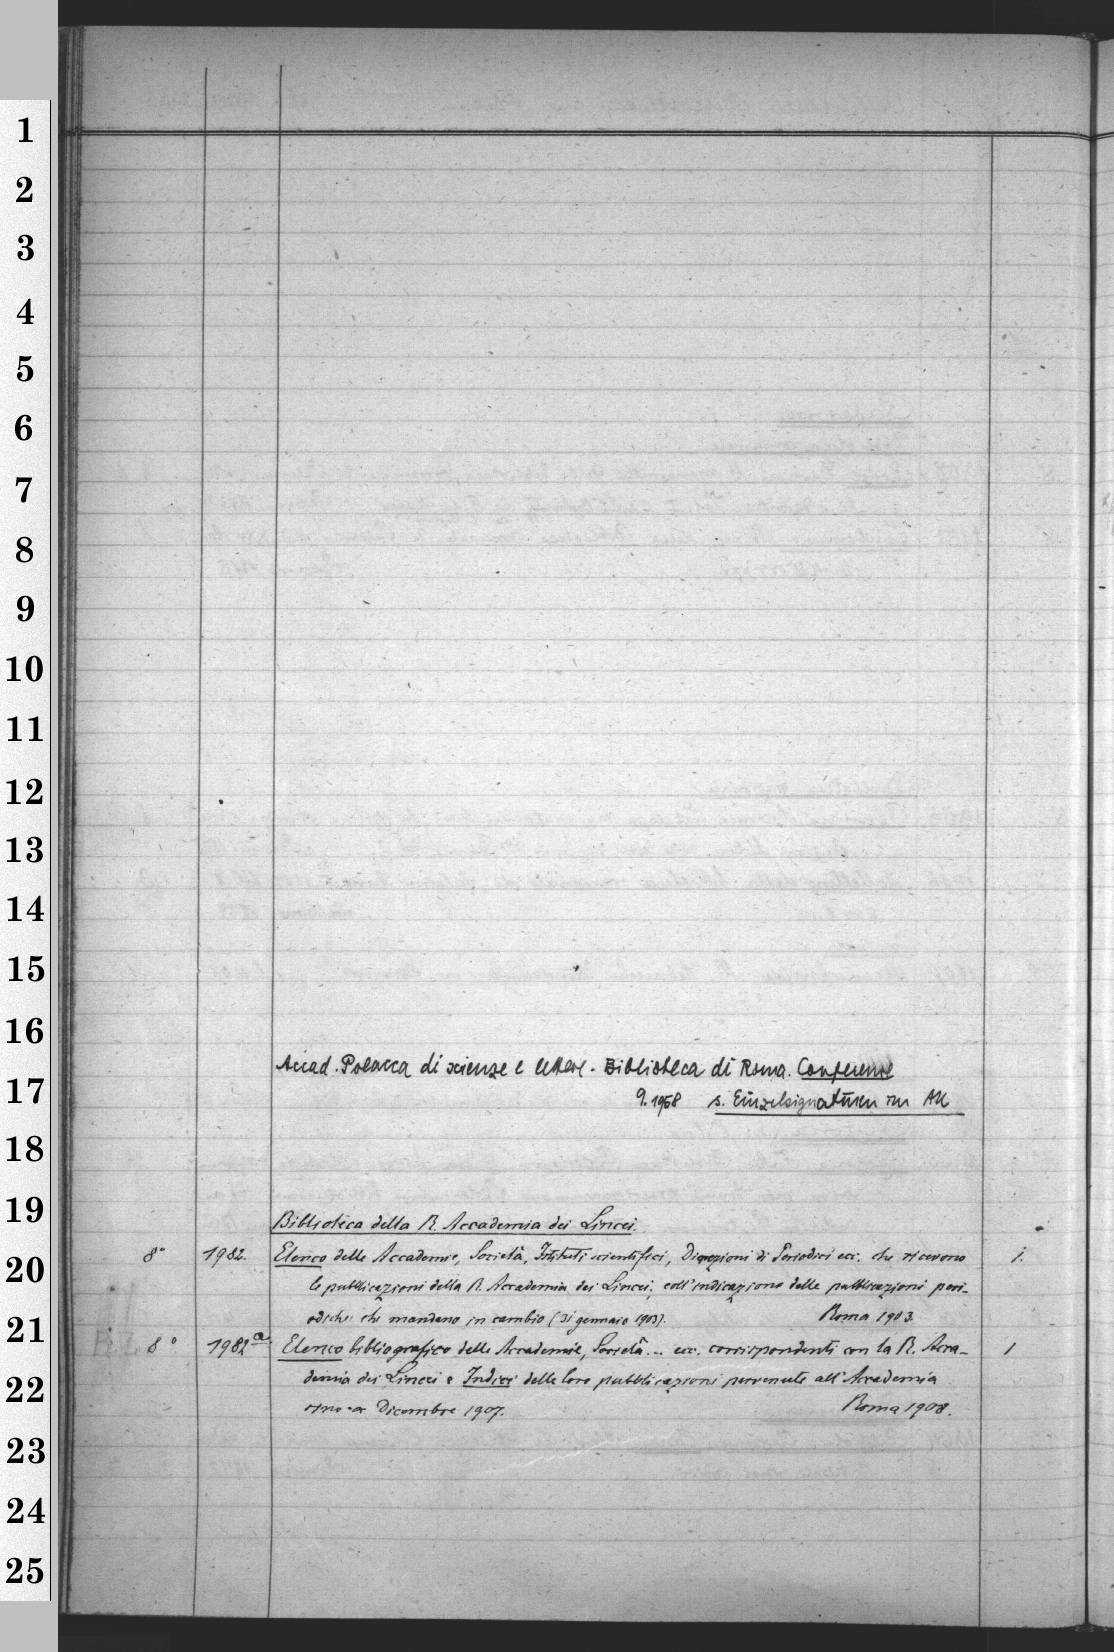 1
2
3
4
5
6
7
8
9
10
11
12
13
14
15
16
17
18
19
20
21
22
23
24
25
Accad. Polacca di scienze e lettere - Biblioteca di Roma. Conferenze
9.1958 s. Einzelsignaturen im AK
Biblioteca della R. Accademia dei Lincei.
8° 1982. Elenco delle Accademie, Società, Istituti scientifici, Direzioni di Periodici ecc. che ricevono 1.
le pubblicazioni della R. Accademia dei Lincei, coll'indicazione delle pubblicazioni peri-
odiche che mandano in cambio (31 gennaio 1903). Roma 1903.
8° 1982a. Elenco bibliografico delle Accademie, Società... ecc. corrispondenti con la R. Acca- 1
demia dei Lincei e Indici delle loro pubblicazioni pervenute all'Accademia
sino a Dicembre 1907. Roma 1908.